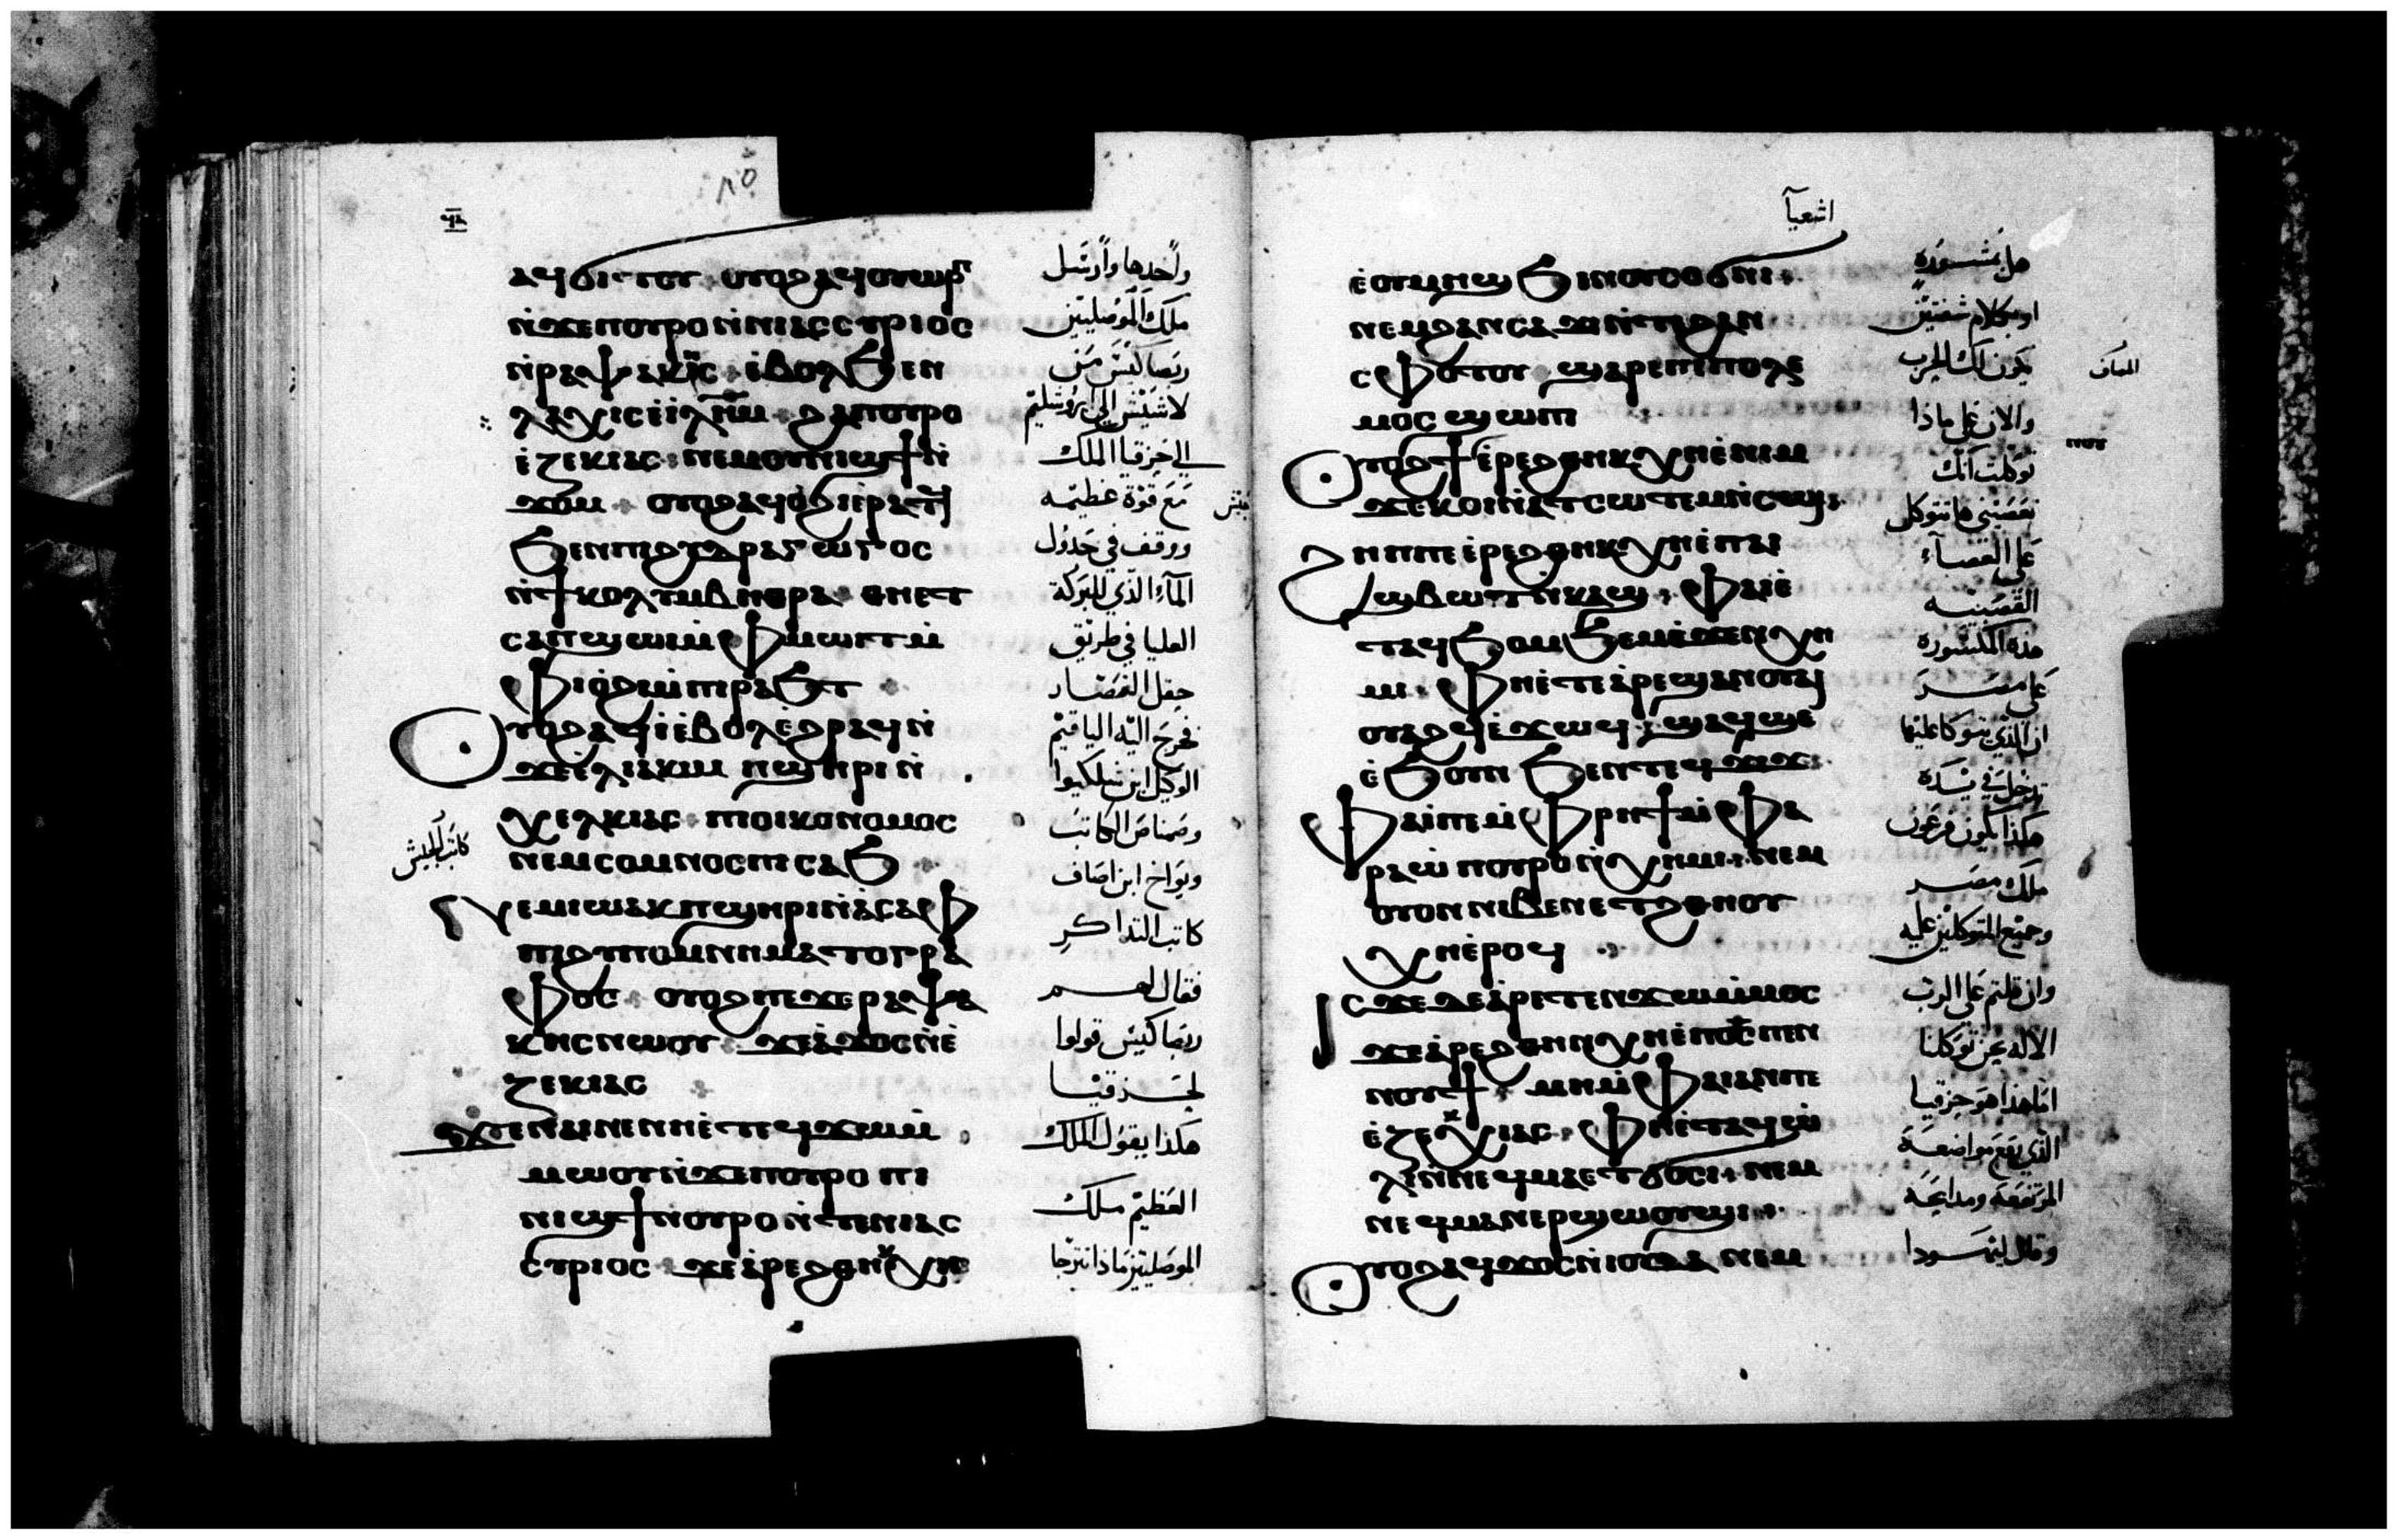 ⲁϥϭⲓⲧⲟⲩ ⲟⲩⲟϩ ⲁϥⲟⲩⲱⲣⲡ
ⲛ̀ϫⲉⲡⲟⲩⲣⲟ ⲛ̀ⲛⲓⲁⲥⲥⲩⲣⲓⲟⲥ
ⲛ̀ⲣⲁⲯⲁⲕⲏⲥ ⲉ̀ⲃⲟⲗϧⲉⲛ
ⲗⲁⲭⲓⲥ ⲉ̀ⲓ̀ⲗ̅ⲏ̅ⲙ̅ ϩⲁⲡⲟⲩⲣⲟ
ⲉ̀ⲍⲉⲕⲓⲁⲥ ⲛⲉⲙⲟⲩⲛⲓϣϯⲛ̀
ϫⲟⲙ ⲟⲩⲟϩ ⲁϥⲟ̀ϩⲓⲉ̀ⲣⲁⲧϥ
ϧⲉⲛⲡⲓϩⲩⲇⲣⲁⲅⲱⲅⲟⲥ
ⲛ̀ϯⲕⲟⲗⲩⲙⲃⲏⲑⲣⲁ ⲑⲏⲉⲧ
ⲥⲁⲡϣⲱⲓ ⲙ̀ⲫⲙⲱⲓⲧ ⲙ̀
ⲫⲓⲟ̀ϩⲓ ⲙ̀ⲡⲓⲣⲁϧⲧ
ⲟⲩⲟϩ ⲁϥⲓ̀ ⲉ̀ⲃⲟⲗ ⲉ̀ϩⲣⲁϥ ⲛ̀
ϫⲉⲉ̀ⲗⲓⲁⲕⲓⲙ ⲡϣⲏⲣⲓ ⲛ̀
ⲭⲉⲗⲕⲓⲁⲥ ⲡⲓⲟⲓⲕⲟⲛⲟⲙⲟⲥ
ⲛⲉⲙⲥⲟⲙⲛⲟⲥ ⲡⲓⲥⲁϧ
ⲛⲉⲙⲓⲱⲁⲕ ⲡϣⲏⲣⲓ ⲛ̀ⲁ̀ⲥⲁⲫ
ⲡⲓϩⲩⲡⲟⲙⲛⲏⲙⲁⲧⲟⲅⲣⲁ
ⲫⲟⲥ ⲟⲩⲟϩ ⲡⲉϫⲉ ⲣⲁⲯⲁ
ⲕⲏⲥ ⲛⲱⲟⲩ ϫⲉⲁ̀ϫⲟⲥ ⲛ̀ⲉ̀
ⲍⲉⲕⲓⲁⲥ
ϫⲉⲛⲁⲓⲛⲉⲛⲏⲉ̀ⲧⲉϥϫⲱ ⲙ̀
ⲙⲱⲟⲩ ⲛ̀ϫⲉⲡⲟⲩⲣⲟ ⲡⲓ
ⲛⲓϣϯ ⲡⲟⲩⲣⲟ ⲛ̀ⲧⲉⲛⲓⲁⲥ
ⲥⲩⲣⲓⲟⲥ ϫⲉⲁ̀ⲣⲉϩⲑⲏⲕ ⲭⲏ
واخدها وارسل
ملك الموصليين
ربصاكيس من
لاشيش الي ايروشليم
الي حزقيا الملك
مع قوة عظيمه
جيش
ووقف في جدول
المآء الذي للبركة
العليا في طريق
حقل القصار
فخرج اليه الياقيم
الوكيل ابن شلكيوا
وصمناص الكاتب
كاتب الجيش
ويواخ ابن اصاف
كاتب التداكر
فقال لهم
ربصاكيس قولوا
لحزقيا
هكذا يقول الملك
العظيم ملك
الموصليين ماذا تترجا
اشعيآ
ⲉ̀ⲟⲩⲙⲏϣ ϧⲓⲛⲟⲩⲥⲟϭⲛⲓ
ⲛⲉⲙϩⲁⲛⲥⲁϫⲓ ⲛ̀ⲧⲉϩⲁⲛ
ⲥⲫⲟⲧⲟⲩ ϣⲁⲣⲉⲡⲓⲡⲟⲗⲉ
ⲙⲟⲥ ϣⲱⲡⲓ
ⲟⲩⲟϩ ϯ ⲉ̀ⲣⲉϩⲑⲏⲕ ⲭⲏ ⲉ̀ⲛⲓⲙ
ϫⲉⲕⲟⲓ ⲛ̀ⲁⲧⲥⲱⲧⲉⲙ ⲛ̀ⲥⲱⲓ
ϩⲏⲡⲡⲉ ⲉ̀ⲣⲉϩⲑⲏⲕ ⲭⲏ ⲉ̀ⲡⲁⲓ
ϣⲃⲱⲧ ⲛ̀ⲕⲁϣ ⲫⲁⲓ ⲉ̀
ⲧⲁϥϧⲟⲙϧⲉⲙ ⲉ̀ϫⲉⲛ ⲭⲏ
ⲙⲓ ⲫⲏⲉ̀ⲧⲉⲁ̀ⲣⲉϣⲁⲛⲟⲩⲁⲓ
ⲟⲩⲁϩϥ ⲉ̀ϫⲱϥ ϣⲁϥϣⲉ
ⲉ̀ϧⲟⲩⲛ ϧⲉⲛⲧⲉϥϫⲓϫ
ⲫⲁⲓ ⲡⲉ ⲙ̀ⲫⲣⲏϯ ⲙ̀ⲫⲁ
ⲣⲁⲱ̀ ⲡⲟⲩⲣⲟ ⲛ̀ⲭⲏⲙⲓ ⲛⲉⲙ
ⲟⲩⲟⲛ ⲛⲓⲃⲉⲛ ⲉⲧϩⲑⲏⲟⲩ
ⲭⲏ ⲉ̀ⲣⲟϥ
ⲓⲥϫⲉ ⲇⲉ ⲁ̀ⲣⲉⲧⲉⲛϫⲱ ⲙ̀ⲙⲟⲥ
ϫⲉⲁ̀ⲣⲉϩⲑⲏⲛ ⲭⲏ ⲉ̀ⲡ⳪ ⲡⲉⲛ
ⲛⲟⲩϯ ⲙⲏ ⲙ̀ⲫⲁⲓ ⲁⲛ ⲡⲉ
ⲉ̀ⲍⲉⲭⲓⲁⲥ ⲫⲏⲉ̀ⲧⲁϥⲱ̀
ⲗⲓ ⲛ̀ⲛⲉϥⲙⲁ ⲉⲧϭⲟⲥⲓ ⲛⲉⲙ
ⲛⲉϥⲙⲁⲛⲉⲣϣⲱⲟⲩϣⲓ
ⲟⲩⲟϩ ⲁϥϫⲟⲥ ⲛ̀ⲓⲟⲩⲇⲁ ⲛⲉⲙ
هل بمشورة
او بكلام شفتين
يكون لك الحرب
والان على ماذا
توكلت انك
تعصيني ها تتوكل
على العصآء
القصبيه
هذه المكسوره
على مصر
ان الذي يتوكا عليها
تدخل في يده
هكذا يكون فرعون
ملك مصر
وجميع المتوكلين عليه
وان قلتم على الرب
الاله نحن توكلنا
اما هذا هو حزقيا
الذي رفع مواضعه
المرتفعه ومدابحه
وقال ليهودا